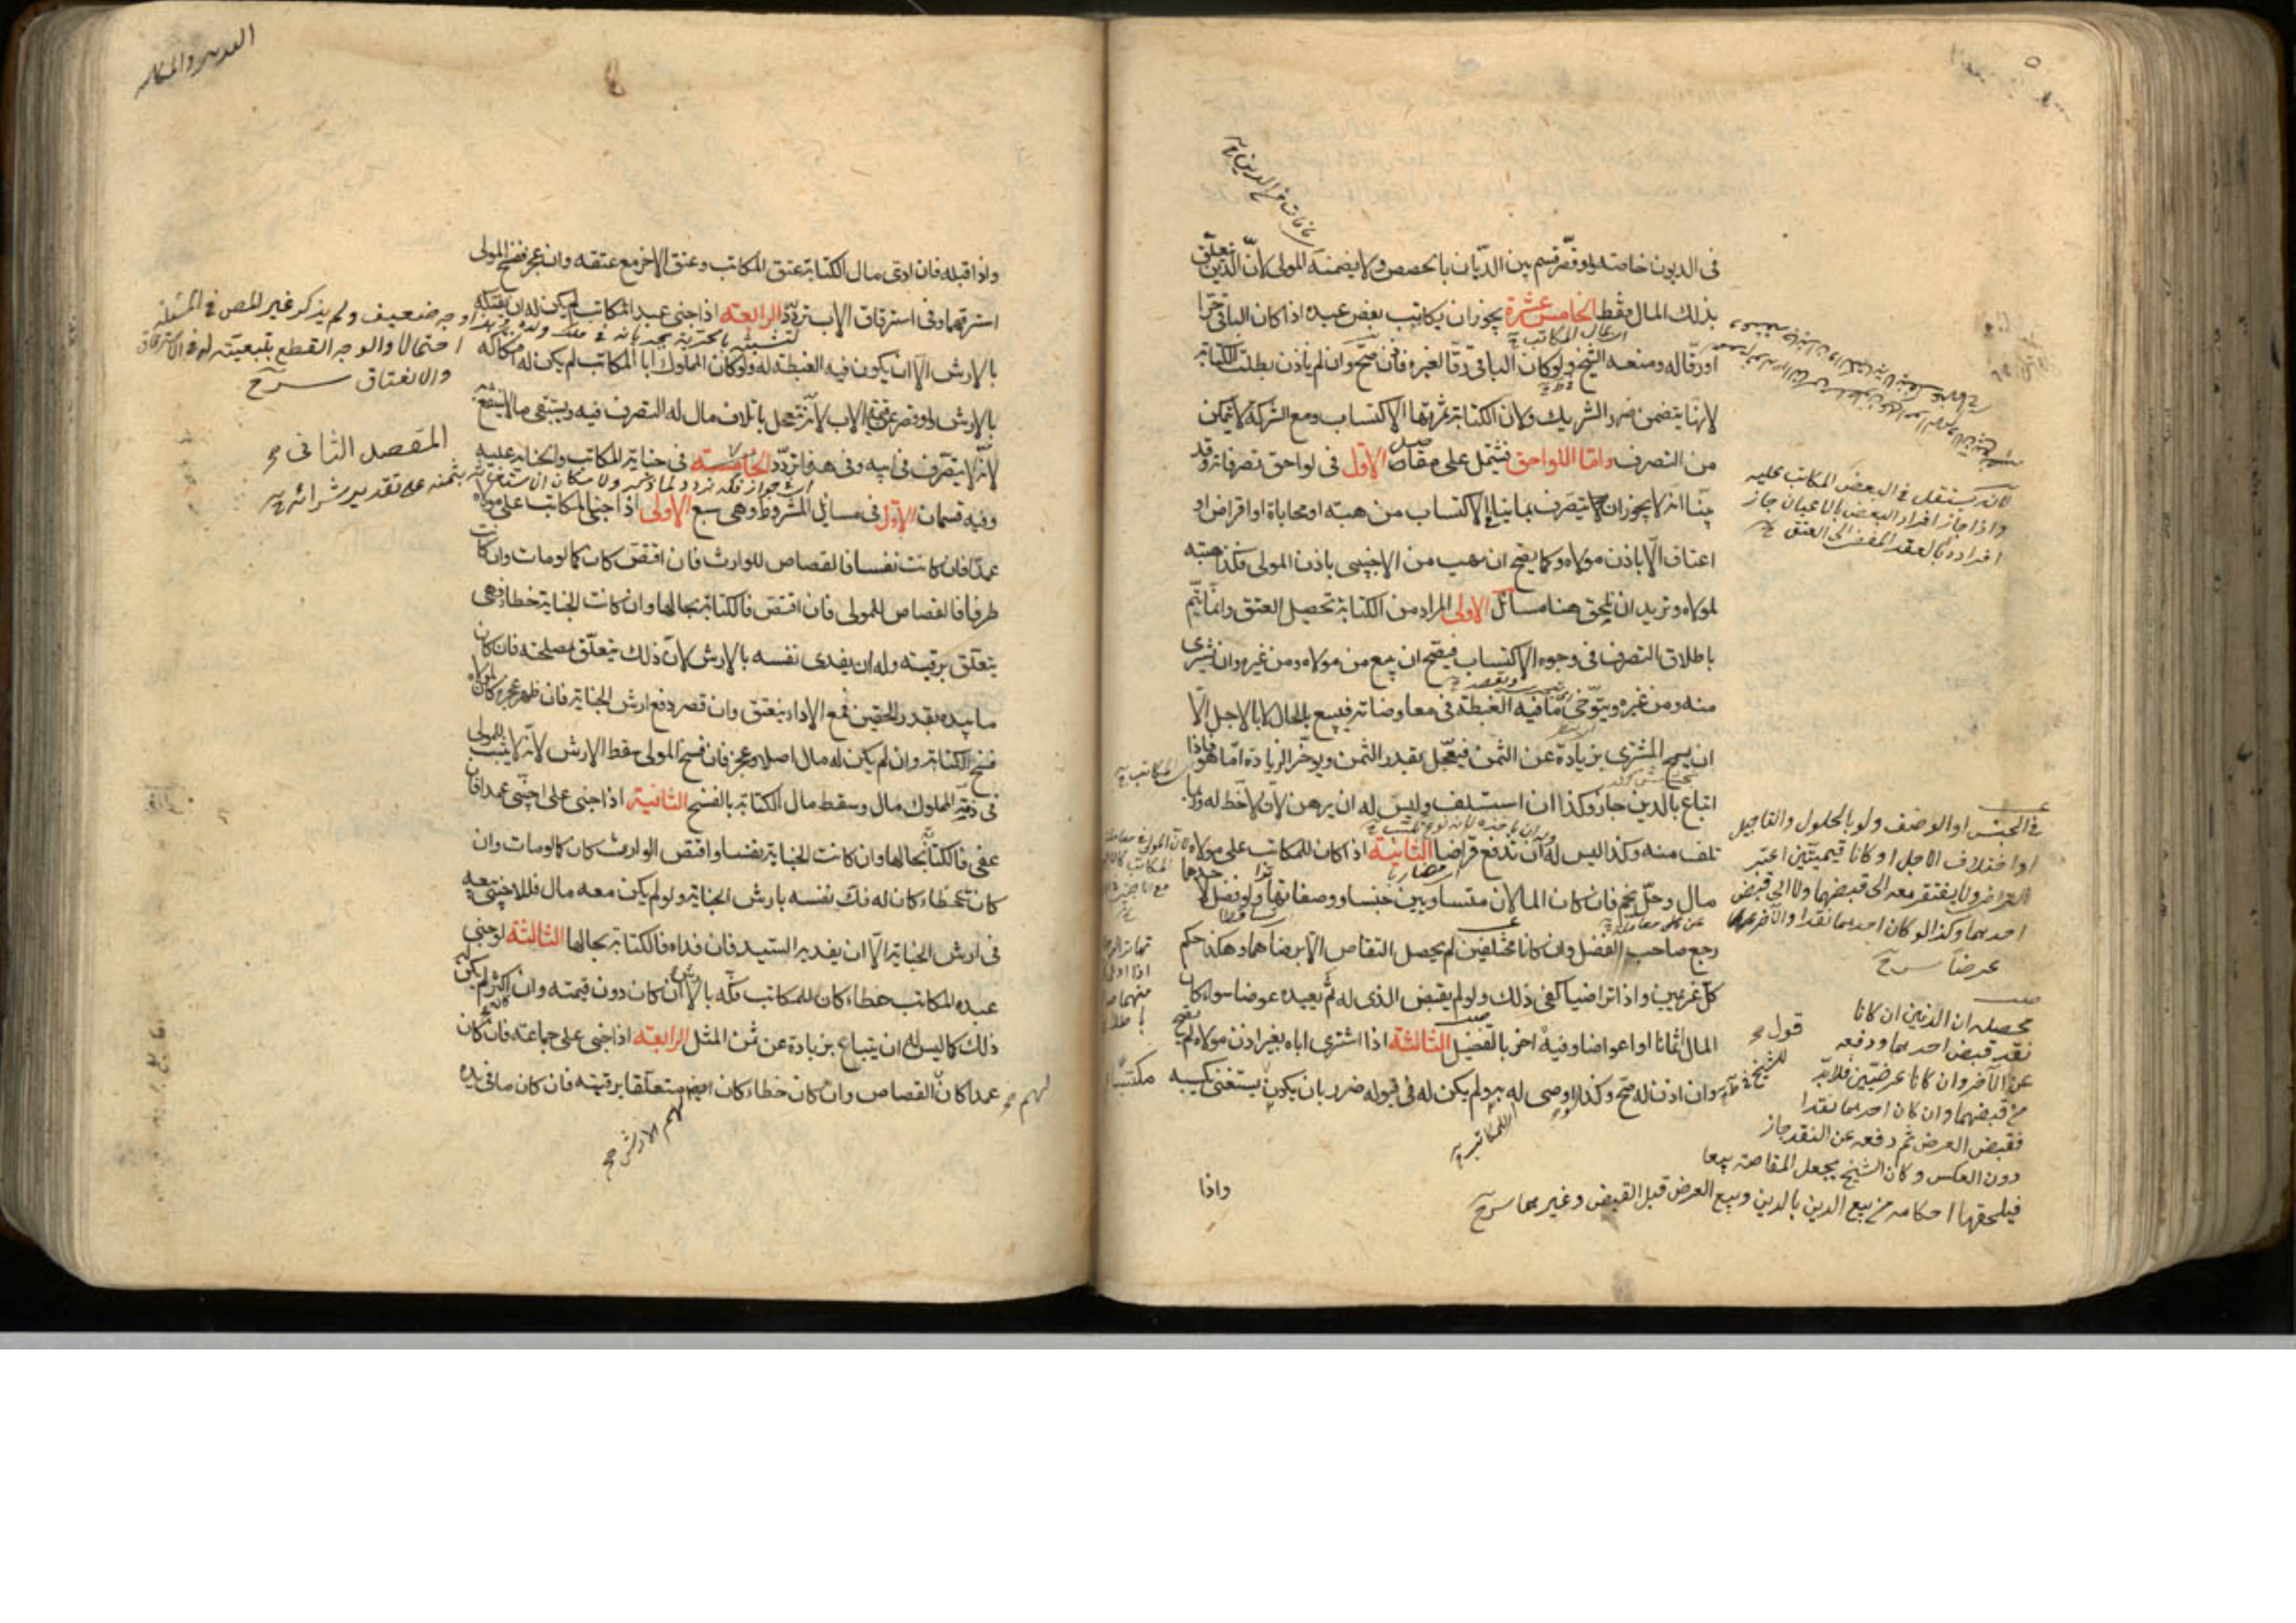 فى الديون خاصة ولو قصر قسم بين الديّان بالحصص ولا يضمنه المولى لانّ الدين تعلّق
بذلك المال فقط الخامس عشرة يجوز ان يكاتب بعض عبده اذا كان الباقى حرّا
او رقّا له ومنعه الشيخ ولو كان الباقى رقّا لغيره فاذن صحّ وان لم ياذن بطلت الكتابة
لانها يتضمن ضرر الشريك ولان الكتابة ثمرتها الاكتساب ومع الشركة لا يتمكن
من التصرف وامّا اللواحق فيشتمل على مقاصد الاوّل فى لواحق تصرفاته وقد
بيّنا انه لا يجوز ان يتصرف بما ينافى الاكتساب من هبته او محاباة او اقراض او
اعتاق الّا باذن مولاه وكما يصحّ ان يهب من الاجنبى باذن المولى فكذا هبته
لمولاه ونريد ان نلحق هنا مسائل الاولى المراد من الكتابة تحصيل العتق وانّما يتمّ
باطلاق التصرف فى وجوه الاكتساب فيصحّ ان يبيع من مولاه ومن غيره وان يشترى
منه ومن غيره ويتوخّى ما فيه الغبطة فى معاوضاته فيبيع بالحال لا بالاجل الّا
ان يسمح المشترى بزيادة عن الثمن فيعجّل بقدر الثمن ويوخّر الزيادة امّا هو فاذا
ابتاع بالدين جاز وكذا ان استسلف وليس له ان يرهن لانّه لا حظ له وربما
تلف منه وكذا ليس له ان يدفع قراضا الثانية اذا كان للمكاتب على مولاه
مال وحلّ نجم فان كان المالان متساويين جنسا ووصفا تهاترا ولو فضل لاحدهما
رجع صاحب الفضل وان كانا مختلفين لم يحصل التقاص الّا برضاهما وهكذا حكم
كلّ غريمين واذا تراضيا كفى ذلك ولو لم يقبض الذى له ثمّ يعيده عوضا سواء كان
المال اثمانا او اعواضا وفيه اخر بالتفصيل الثالثة اذا اشترى اباه بغير اذن مولاه لم يصحّ
وان اذن له صح وكذا لو اوصى له به ولم يكن له فى قبوله ضرر بان يكون يستغنى بكسبه
واذا
لانه يستقل فى البعض المكاتب عليه
واذا جاز افراد البعض بالاعيان جاز
افراده بالعقد المفضى الى العتق
فى الجنس او الوصف ولو بالحلول والتاجيل
او اختلاف الاجل او كانا قيميّتين اعتبر
التراضى ولا يفتقر معه الى قبضهما ولا الى قبض
احدهما وكذا لو كان احدهما نقدا والآخر
عرضا
محصله ان الدينين ان كانا
نقد قبض احدهما ودفعه
عن الآخر وان كانا عرضيّين فلا بدّ
من قبضهما وان كان احدهما نقدا
فقبض العرض ثم دفعه عن النقد جاز
دون العكس وكان الشيخ يجعل المقاصة بيعا
فيلحقها احكامه من بيع الدين بالدين وبيع العرض قبل القبض وغيرهما
واذا قبله فان ادى مال الكتابة عتق المكاتب وعتق الاخر مع عتقه وان عجز ففسخ المولى
استرقهما وفى استرقاق الاب تردّد الرابعة اذا جنى عبد المكاتب لم يكن له ان يفتكّه
بالارش الّا ان يكون فيه الغبطة له ولو كان المملوك ابا المكاتب لم يكن له افتكاكه
بالارش ولو قصر عن قيمة الاب لانّه يتعجل باتلاف مال له التصرف فيه ويستبقى ما لا ينتفع به
لانّه لا يتصرف فى ابيه وفى هذا تردّد الخامسة فى جناية المكاتب والجناية عليه
وفيه قسمان الاوّل فى مسائل المشروط وهى سبع الاولى اذا جنى المكاتب على مولاه
عمدا فان كانت نفسا فالقصاص للوارث فان اقتصّ كان كما لو مات وان كانت
طرفا فالقصاص للمولى فان اقتصّ فالكتابة بحالها وان كانت الجناية خطاء فهى
يتعلّق برقبته وله ان يفدى نفسه بالارش لانّ ذلك يتعلّق بمصلحته فان كان
ما بيده بقدر الحقين فمع الاداء ينعتق وان قصر دفع ارش الجناية فان ظهر عجزه كان لمولاه
فسخ الكتابة وان لم يكن له مال اصلا وعجز فان فسخ المولى سقط الارش لانّه لا يثبت للمولى
فى ذمّة المملوك مال وسقط مال الكتابة بالفسخ الثانية اذا جنى على اجنبى عمدا فان
عفى فالكتابة بحالها وان كانت الجناية نفسا واقتصّ الوارث كان كما لو مات وان
كان خطاء كان له فكّ نفسه بارش الجناية ولو لم يكن معه مال فللاجنبى بيعه
فى ارش الجناية الّا ان يفديه السيّد فان فداه فالكتابة بحالها الثالثة لو جنى
عبد المكاتب خطاء كان للمكاتب فكّه بالارش ان كان دون قيمته وان كان اكثر لم يكن له
ذلك كما ليس له ان يبتاع بزيادة عن ثمن المثل الرابعة اذا جنى على جماعة فان كان
عمدا كان القصاص وان كان خطاء كان الارش متعلّقا برقبته فان كان ما فى يده
لهم الارش
وجه ضعيف ولم يذكر غير المص فى المسئلة
احتمالا والوجه القطع بتبعيّته له فى الاسترقاق
والانعتاق
المقصد الثانى